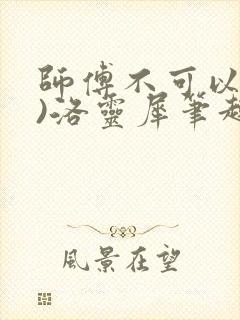 師傅不可以
)洛靈犀筆趣
風景在望